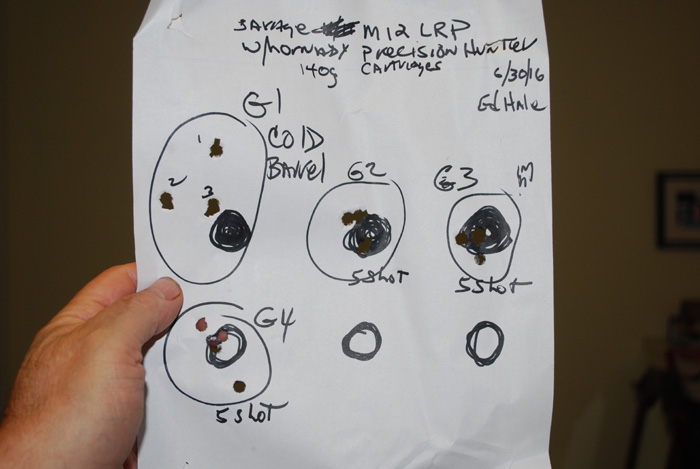 SAVAGE M12 LRP
W/HORNADY PRECISION HUNTER
140g CARTRIDGES
6/30/16
Ed Hale
G1
COLD
BARREL
1
2
3
G2
5 SHOT
G3
5 SHOT
G4
5 SHOT